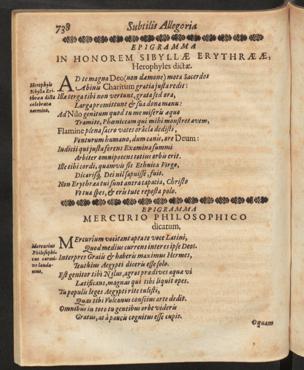 738 Subtilis Allegoria
EPIGRAMMA
IN HONOREM SIBYLLÆ ERYTHRÆÆ,
Herophyles dictæ.
Herophyle
Sibylla Ery-
thræa dicta
celebratur
carmine.
AD te magna Deo (non dæmone) mota Sacerdos
Abinis Charitum gratia justa redit:
Illæ terga tibi non vertunt, grata sed ora,
Larga promittunt & sua dona manu:
Ad Nilo genitum quod tu me miseris aqua
Tramite, Phœnicem qui mihi monstret avem,
Flamine plena sacro vates oracla dedisti,
Venturum humano, dum canis, ore Deum:
Indicii qui justa ferens Examina summi
Arbiter omnipotens totius orbis erit.
Ille tibi cordi, quamvis sis Ethnica Virgo,
Dicaris, Dei nil sapuisse, fuit.
Non Erythræa tui sunt antra capacia, Christo
Vota spes, & eris tute reposta polo.
EPIGRAMMA
MERCURIO PHILOSOPHICO
dicatum,
Mercurius
Philosophi-
cus carmi-
ne lauda-
tur.
MErcurium vocitant apta te voce Latini,
Quod medius currens inter es ipse Deos.
Interpres Graiis & haberis maximus Hermes,
Teuthium Aegypti diceris esse solo.
Est genitor tibi Nilus, agros prædives aqua vi
Latificans, magnas qui tibi liquit opes.
Tu populis leges Aegypti rite tulisti,
Quas tibi Vulcanus conscius arte dedit.
Omnibus in toto tu gentibus orbe videris
Gratus, at à paucis cognitus esse cupis.
O quam